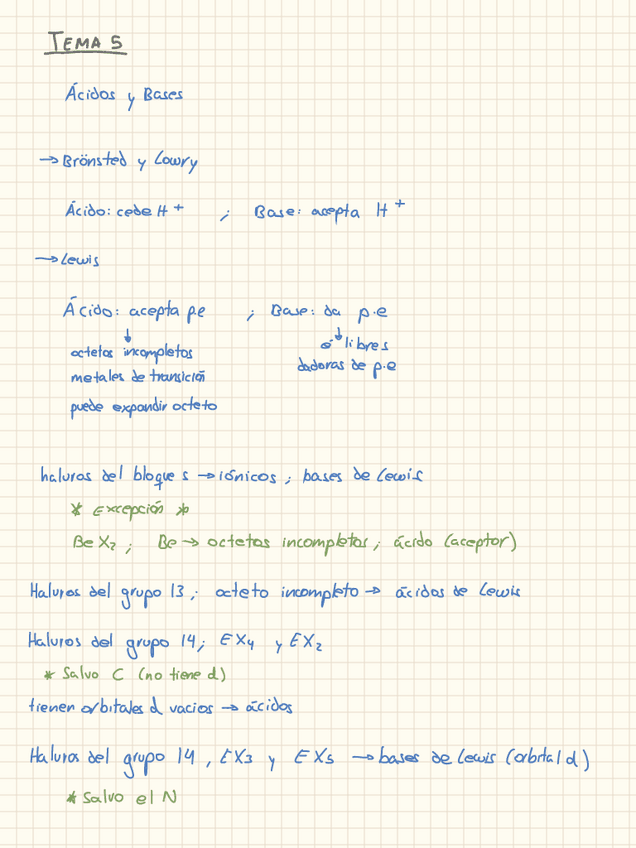 TEMA 5
Ácidos y Bases
→ Brönsted y Lowry
Ácido: cede H⁺ ; Base: acepta H⁺
→ Lewis
Ácido: acepta p.e ; Base: da p.e
↓ ↓
octetos incompletos e⁻ libres
metales de transición dadoras de p.e
puede expandir octeto
haluros del bloque s → iónicos ; bases de Lewis
* Excepción *
BeX₂ ; Be → octetos incompletos ; ácido (aceptor)
Haluros del grupo 13 ; octeto incompleto → ácidos de Lewis
Haluros del grupo 14 ; EX₄ y EX₂
* Salvo C (no tiene d)
tienen orbitales d vacios → ácidos
Haluros del grupo 14 , EX₃ y EX₅ → bases de Lewis (orbital d)
* Salvo el N